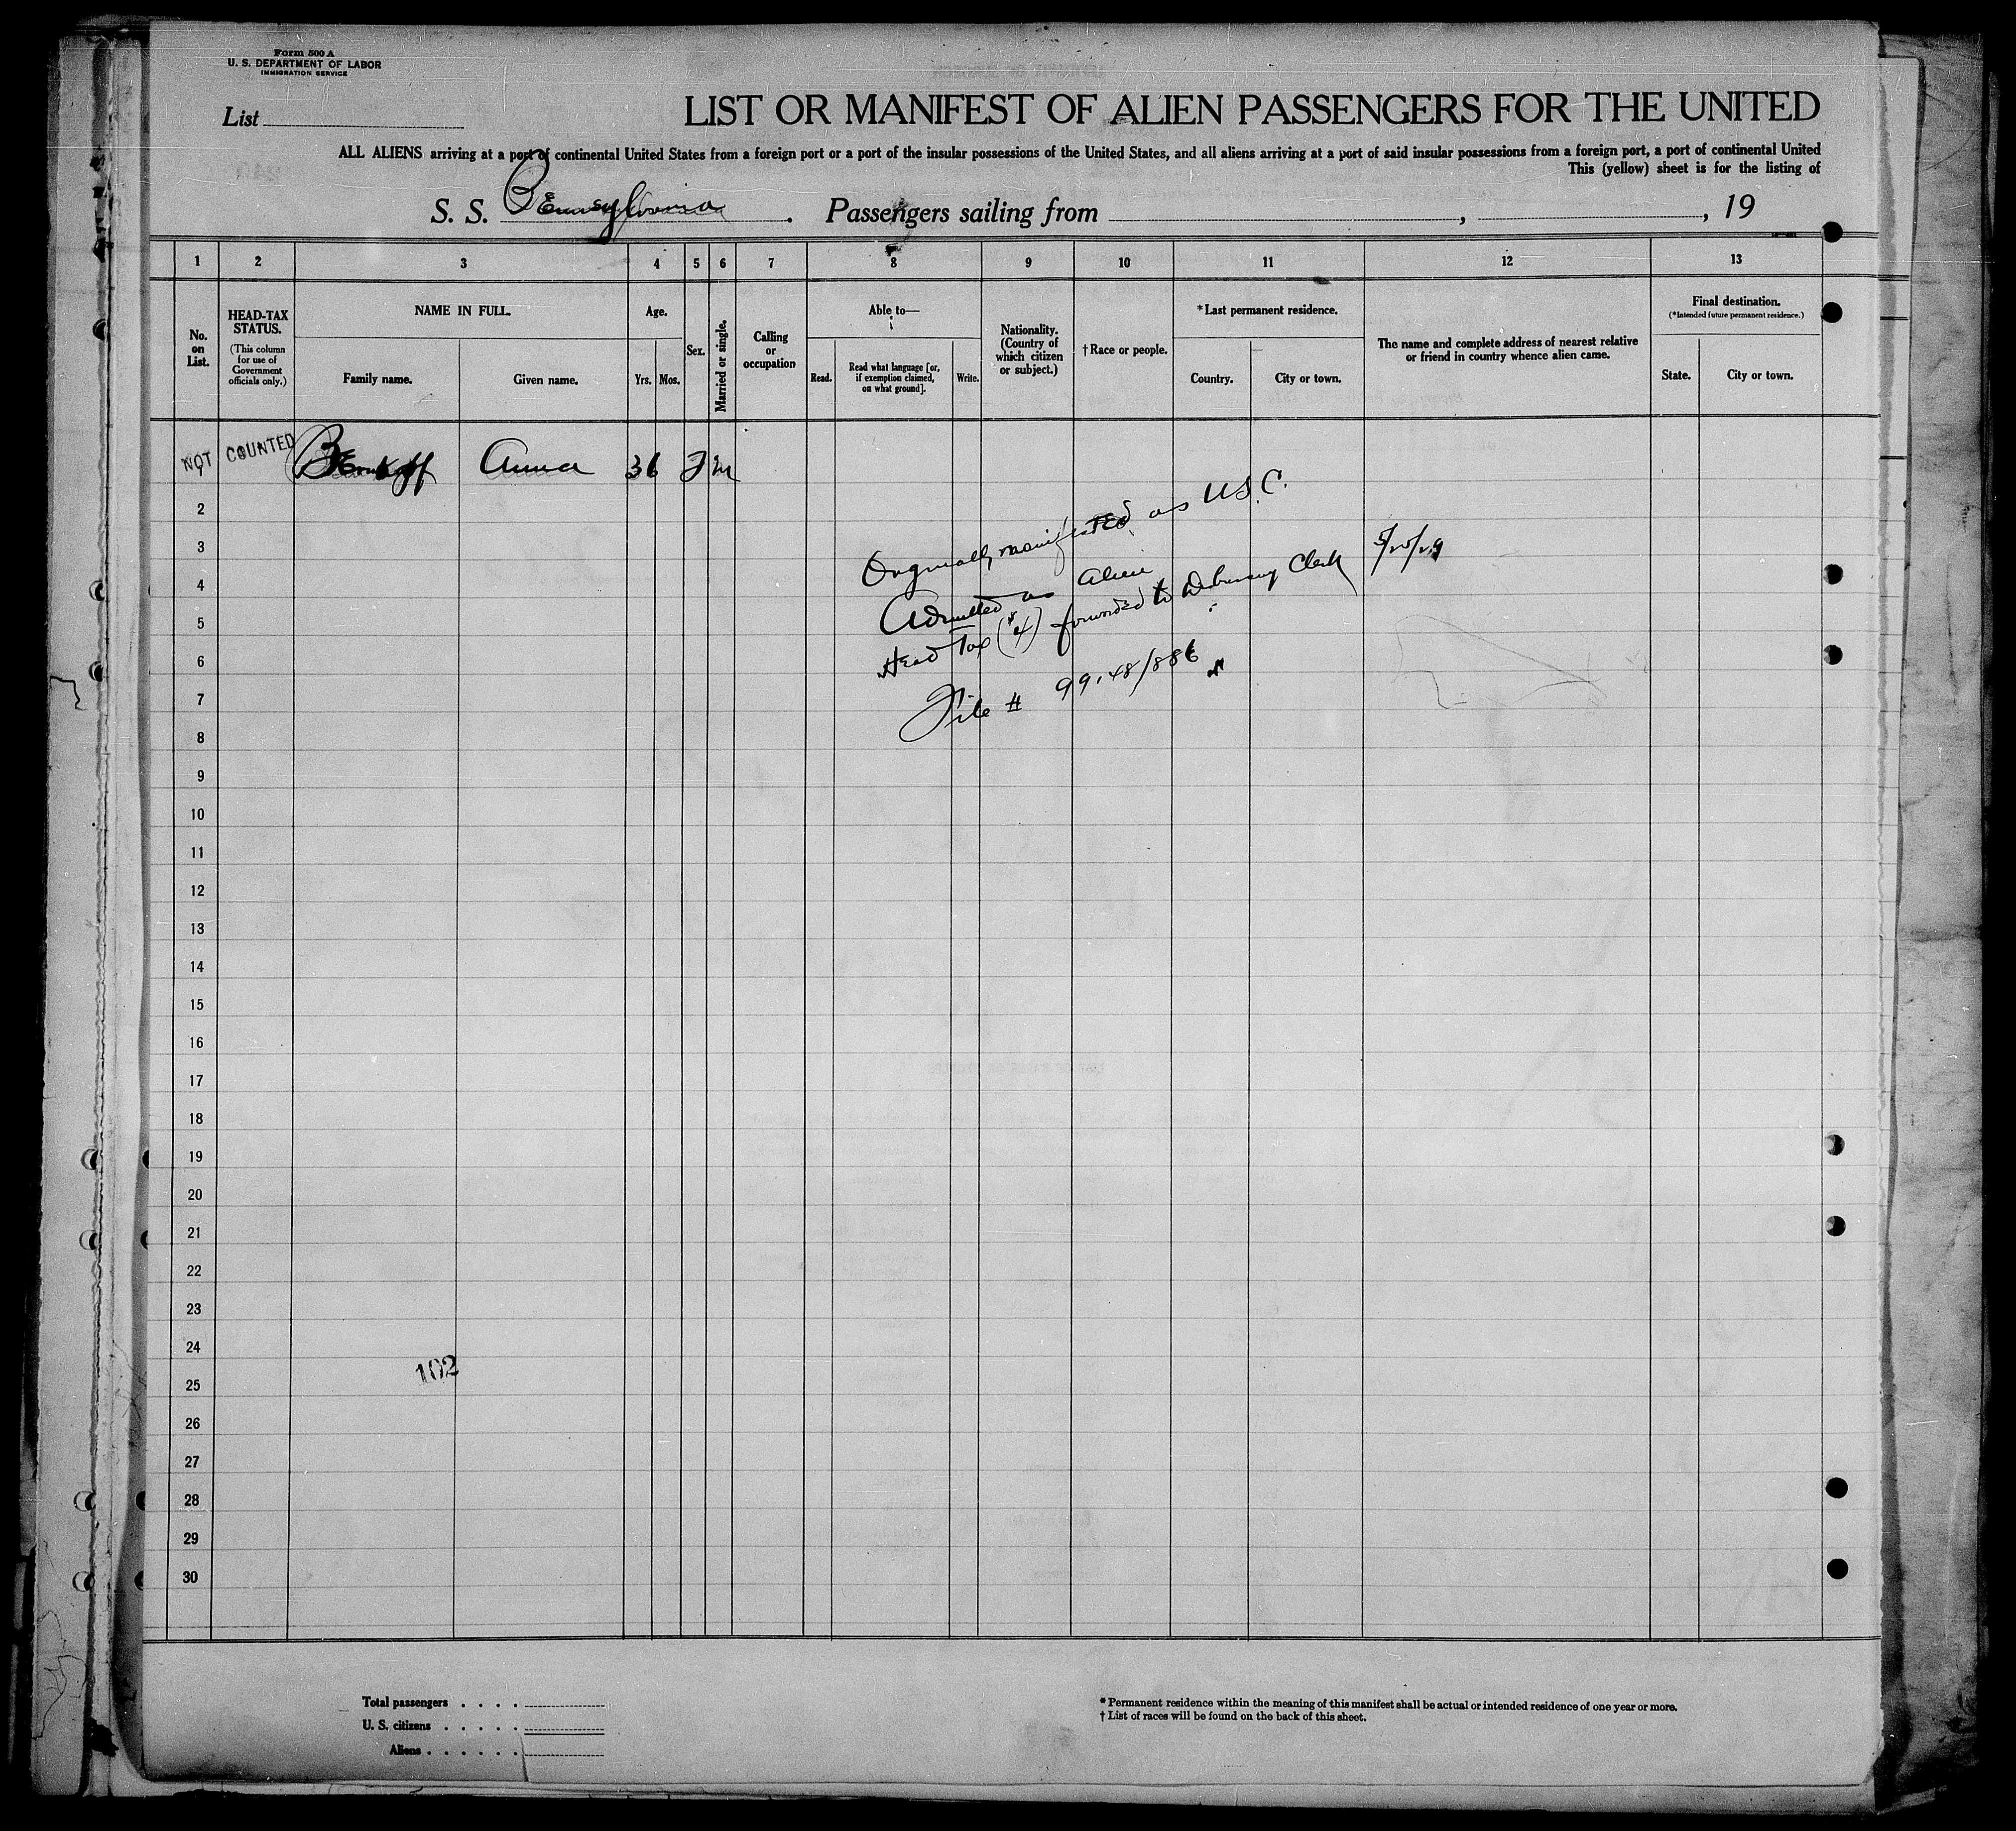 Form 500 A
U. S. DEPARTMENT OF LABOR
IMMIGRATION SERVICE
List
LIST OR MANIFEST OF ALIEN PASSENGERS FOR THE UNITED
ALL ALIENS arriving at a port of continental United States from a foreign port or a port of the insular possessions of the United States, and all aliens arriving at a port of said insular possessions from a foreign port, a port of continental United
This (yellow) sheet is for the listing of
S. S. Pennsylvania. Passengers sailing from , , 19
1 2 3 4 5 6 7 8 9 10 11 12 13
No. on List.
HEAD-TAX STATUS.
(This column for use of Government officials only.)
NAME IN FULL.
Family name.
Given name.
Age.
Yrs.
Mos.
Sex.
Married or single.
Calling or occupation
Able to—
Read.
Read what language [or, if exemption claimed, on what ground].
Write.
Nationality. (Country of which citizen or subject.)
†Race or people.
*Last permanent residence.
Country.
City or town.
The name and complete address of nearest relative or friend in country whence alien came.
Final destination.
(*Intended future permanent residence.)
State.
City or town.
1 NOT COUNTED Anna 36 F M
Originally manifested as U.S.C.
Admitted as Alien
Head Tax ($4) forwarded to Disbursing Clerk
File # 99,48/886
2
3
4
5
6
7
8
9
10
11
12
13
14
15
16
17
18
19
20
21
22
23
24
102
25
26
27
28
29
30
Total passengers . . . .
U. S. citizens . . . . .
Aliens . . . . . .
* Permanent residence within the meaning of this manifest shall be actual or intended residence of one year or more.
† List of races will be found on the back of this sheet.